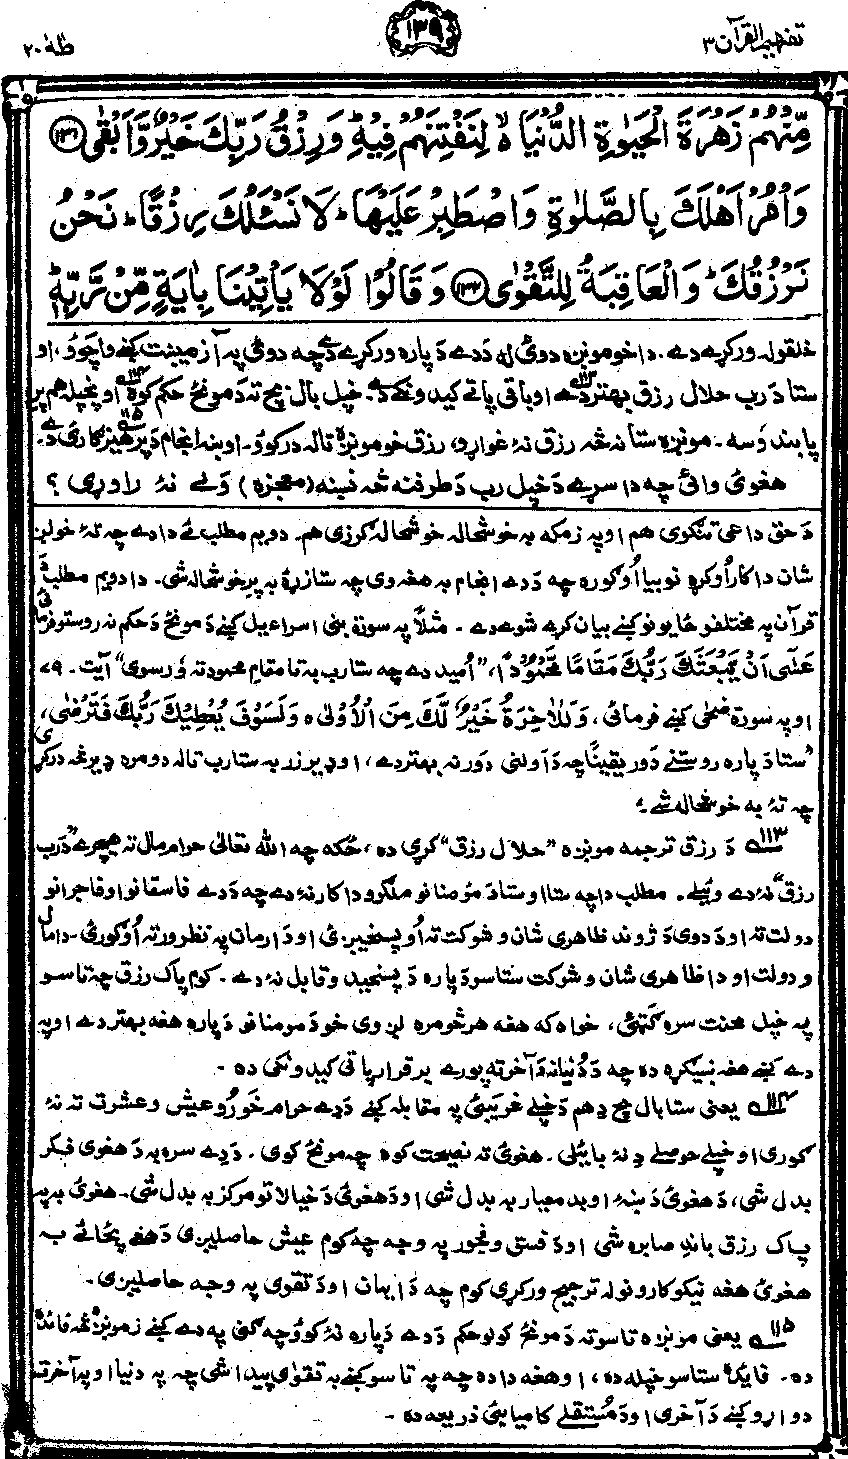 تفہیم القرآن ۳
۱۳۹
طٰهٰ ۲۰
مِّنْهُمْ زَهْرَةَ الْحَيٰوةِ الدُّنْيَا ۙ لِنَفْتِنَهُمْ فِيْهِ ؕ وَرِزْقُ رَبِّكَ خَيْرٌ وَّاَبْقٰى ﴿۱۳۱﴾
وَاْمُرْ اَهْلَكَ بِالصَّلٰوةِ وَاصْطَبِرْ عَلَيْهَا ؕ لَا نَسْـَٔلُكَ رِزْقًا ؕ نَحْنُ
نَرْزُقُكَ ؕ وَالْعَاقِبَةُ لِلتَّقْوٰى ﴿۱۳۲﴾ وَقَالُوْا لَوْلَا يَاْتِيْنَا بِاٰيَةٍ مِّنْ رَّبِّهٖ ؕ
خلقو له ورکړے دے. دا خو مونږه دوئ له ددے دپاره ورکړے دے چه دوئ په آزمیښت کښے واچوو، او
ستا درب حلال رزق ۱۱۳ بهتر دے او باقی پاتے کیدونکے دے. خپل بال بچ ته دمونځ حکم کوه ۱۱۴ او پخپله هم پرے
پابند وسه. مونږه ستا نه څه رزق نۀ غواړو، رزق خو مونږه تا له درکوو. او ښه انجام د پرهیزګارئ دے ۱۱۵.
هغوئ وائی چه دا سړے دخپل رب دطرفنه څه نښه (معجزه) ولے نۀ راوړی ؟
دحق داعی تنګوی هم او په زمکه به خوشحاله خوشحاله ګرزی هم. دویم مطلب ئے دا دے چه تۀ خو لږ
شان دا کار اوکړه نو بیا اُوګوره چه ددے انجام به هغه وی چه ستا زړۀ به پرے خوشحاله شی. دا دویم مطلب د
قرآن په مختلفو ځایونو کښے بیان کړے شوے دے. مثلاً په سورة بنی اسراءیل کښے دمونځ دحکم نه روستو فرمائی
عَسٰٓى اَنْ يَّبْعَثَكَ رَبُّكَ مَقَامًا مَّحْمُوْدًا، ”اُمید دے چه ستا رب به تا مقام محمود ته وُرسوی“ آیت. ۷۹
او په سورة ضحٰی کښے فرمائی، وَلَلْاٰخِرَةُ خَيْرٌ لَّكَ مِنَ الْاُوْلٰى ه وَلَسَوْفَ يُعْطِيْكَ رَبُّكَ فَتَرْضٰى،
”ستا دپاره روستنے دور یقیناً چه د اولنی دور نه بهتر دے، او ډیر زر به ستا رب تا له دومره ډیر څه درکړی
چه تۀ به خوشحاله شے.“
۱۱۳ د رزق ترجمه مونږه ”حلال رزق“ کړی ده، ځکه چه الله تعالیٰ حرام مال ته هیچرے ”درب
رزق“ نۀ دے وئیلے. مطلب دا چه ستا او ستا د مؤمنانو ملګرو دا کار نۀ دے چه ددے فاسقانو او فاجرانو
دولت ته او د دوی د ژوند ظاهری شان و شوکت ته اُوپسخیږئ او د ارمان په نظر ورته اُوګورئ. دا مال
و دولت او دا ظاهری شان و شوکت ستاسو دپاره د پسخیدو قابل نۀ دے. کوم پاک رزق چه تاسو
په خپل محنت سره ګټئ، خواه که هغه هر څومره لږ وی خو د مومنانو دپاره هغه بهتر دے او په
دے کښے هغه نیکړه ده چه د دُنیا نه د آخرت پورے برقرار پاتی کیدونکی ده.
۱۱۴ یعنی ستا بال بچ دِ هم دخپلے غریبئ په مقابله کښے ددے حرام خورو عیش و عشرت ته نۀ
ګوری او خپلے حوصلے دِ نۀ بائیلی. هغوئ ته نصیحت کوه چه مونځ کوی. ددے سره به دهغوی فکر
بدل شی، دهغوئ د ښۀ او بد معیار به بدل شی او دهغوئ د خیالاتو مرکز به بدل شی. هغوئ به په
پاک رزق باندِ صابره شی او د فسق و فجور په وجه چه کوم عیش حاصلیږی دهغے پځائے به
هغوئ هغه نیکو کارونو له ترجیح ورکړی کوم چه د ایمان او د تقوی په وجه حاصلیږی.
۱۱۵ یعنی مونږه تاسو ته دمونځ کولو حکم ددے دپاره نۀ کوو چه ګنی په دے کښے زمونږه څه فائده
ده. فایده ستاسو خپله ده، او هغه دا ده چه په تاسو کښے به تقوٰی پیدا شی چه په دنیا او په آخرت
دواړو کښے د آخری او د مُستقلے کامیابئ ذریعه ده.